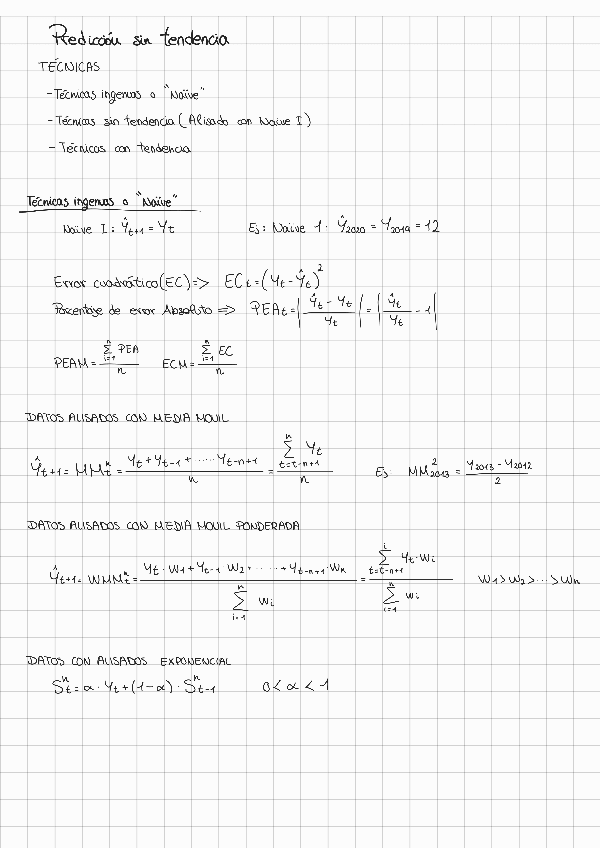 Predicción sin tendencia
TÉCNICAS
- Técnicas ingenuas o "Naïve"
- Técnicas sin tendencia (Alisado con Naive I)
- Técnicas con tendencia
Técnicas ingenuas o "Naïve"
Naïve I: Ŷt+1 = Yt    Ej: Naive 1. Ŷ2020 = Y2019 = 12
Error cuadrático (EC) => ECt = (Yt - Ŷt)²
Porcentaje de error Absoluto => PEAt = |(Ŷt - Yt)/Yt| = |Ŷt/Yt - 1|
PEAM = (Σ_{i=1}^{n} PEA)/n    ECM = (Σ_{i=1}^{n} EC)/n
DATOS ALISADOS CON MEDIA MOVIL
Ŷt+1 = MMt^n = (Yt + Yt-1 + ..... Yt-n+1)/n = (Σ_{t=t-n+1}^{n} Yt)/n    Ej MM²2013 = (Y2013 - Y2012)/2
DATOS ALISADOS CON MEDIA MOVIL PONDERADA
Ŷt+1 = WMMt^n = (Yt · W1 + Yt-1 · W2 + ..... + Yt-n+1 · Wn)/(Σ_{i=1}^{n} Wi) = (Σ_{t=t-n+1}^{i} Yt · Wi)/(Σ_{i=1}^{n} Wi)    W1 > W2 > ... > Wn
DATOS CON ALISADOS EXPONENCIAL
St^n = α · Yt + (1-α) · S^n t-1    0 < α < 1